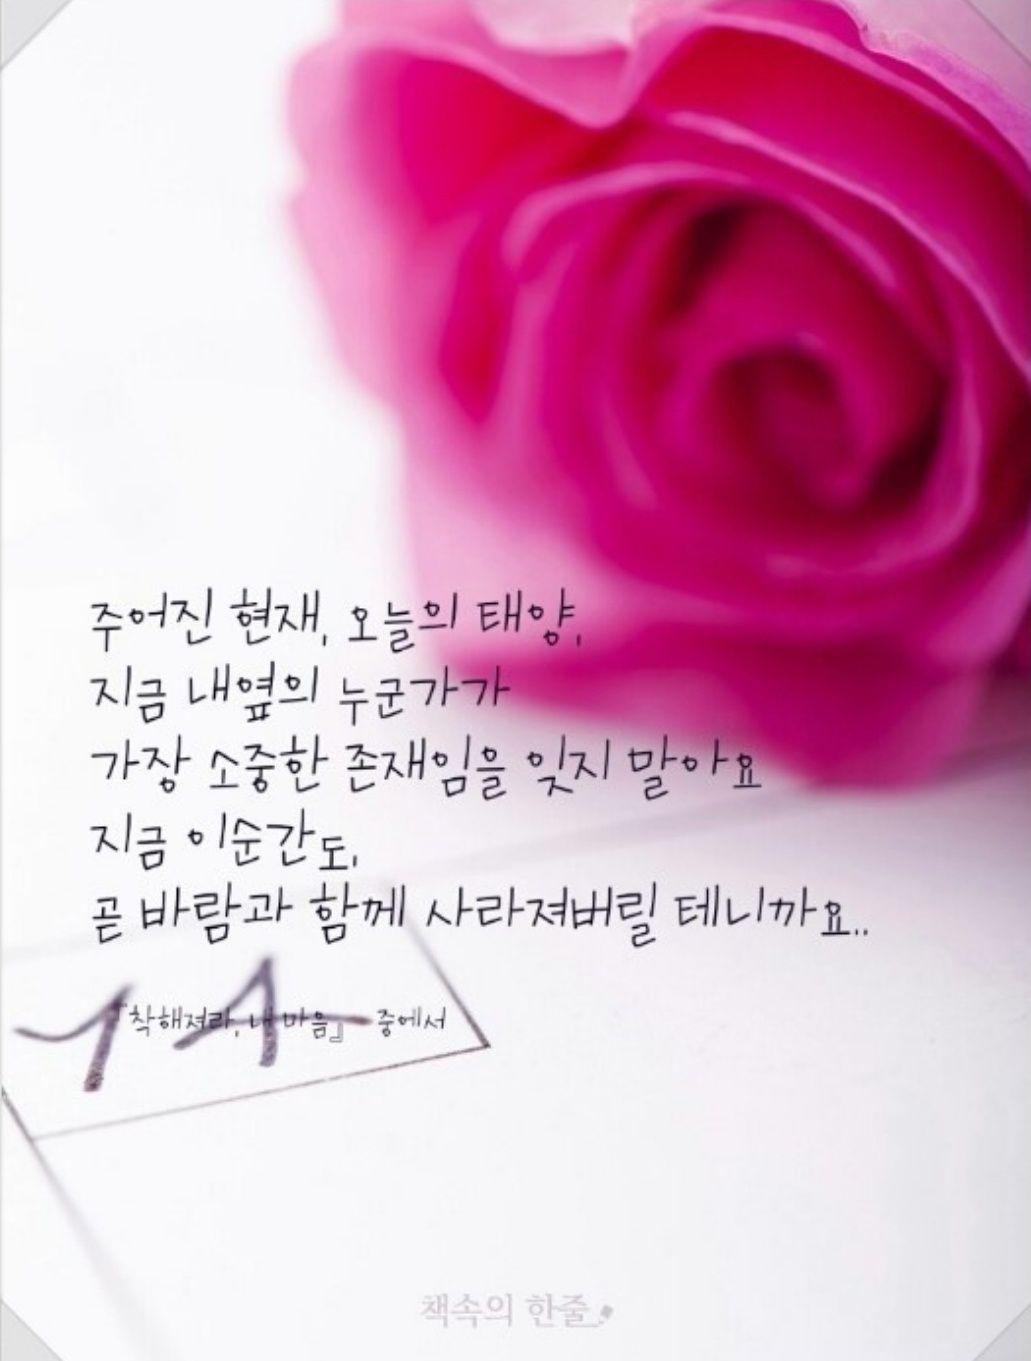 주어진 현재, 오늘의 태양,
지금 내옆의 누군가가
가장 소중한 존재임을 잊지 말아요
지금 이순간도,
곧 바람과 함께 사라져버릴 테니까요..
『착해져라, 내 마음』 중에서
책속의 한줄